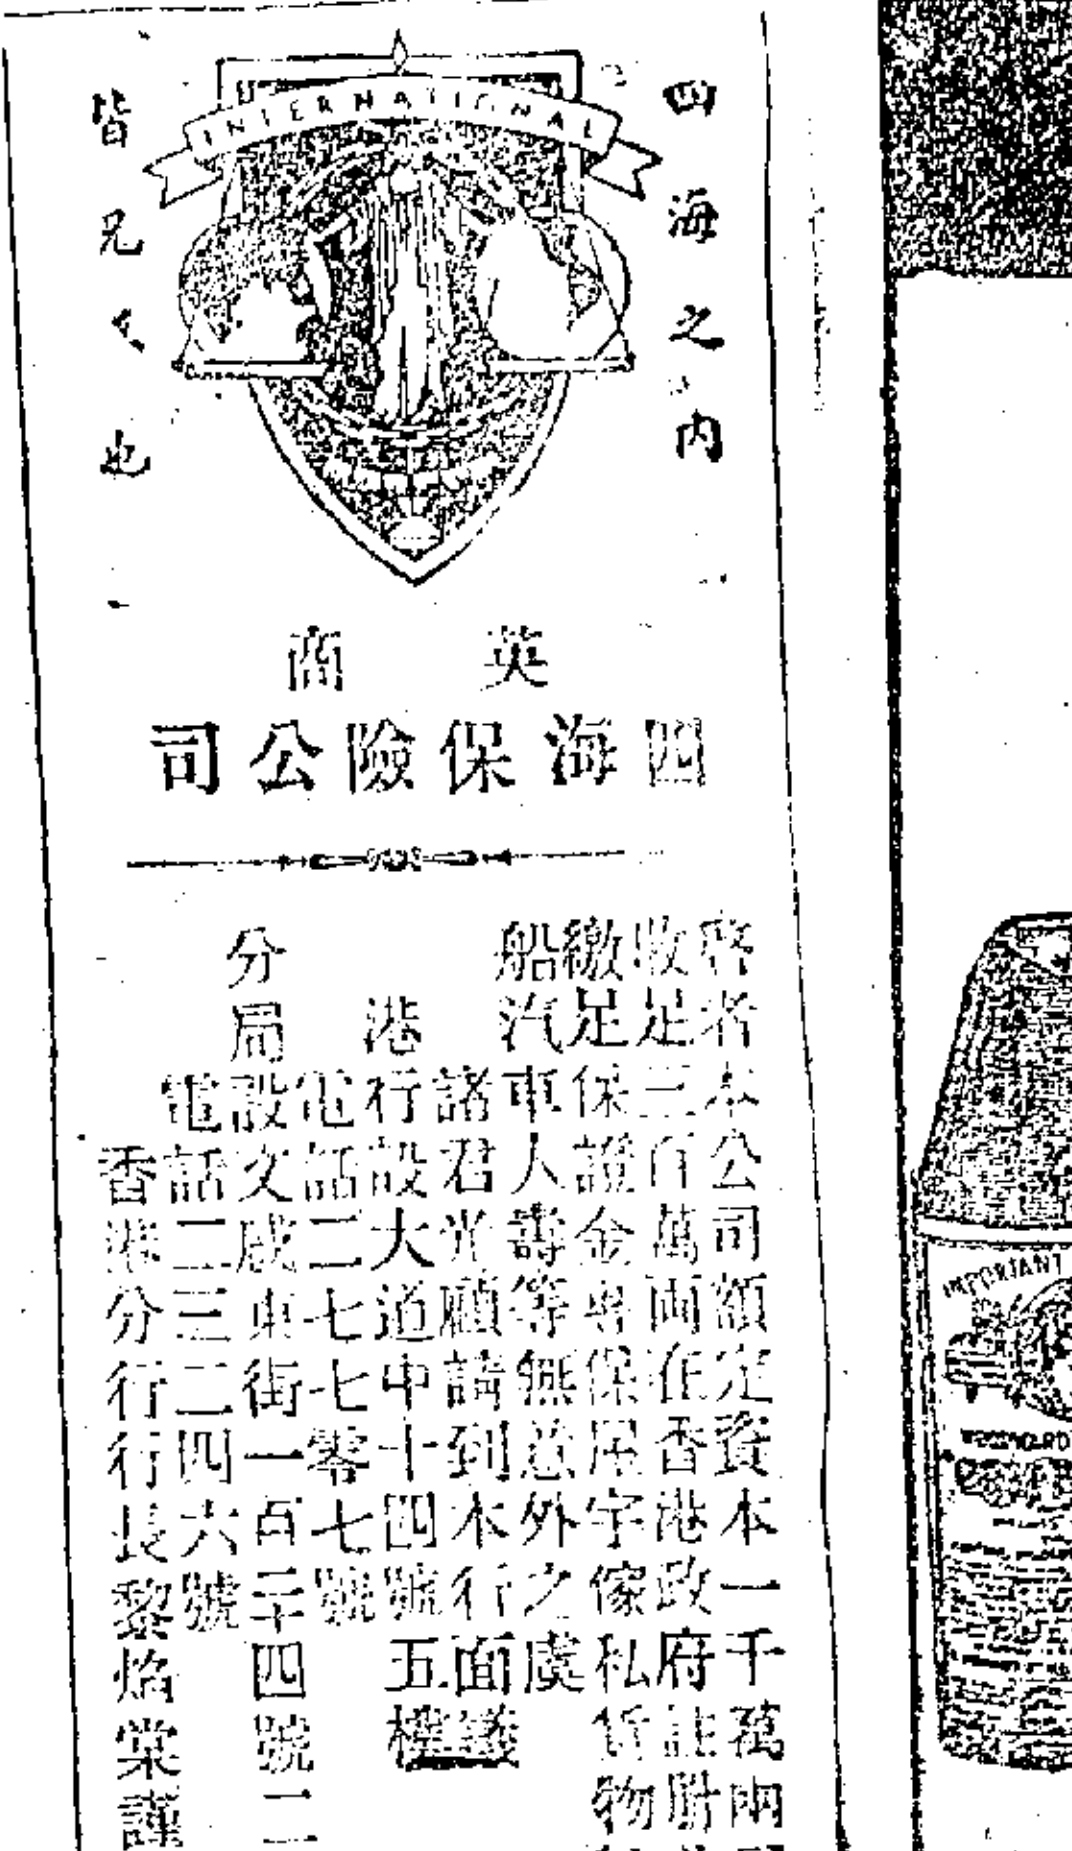 INTERNATIONAL
四海之內
皆兄也
英商
四海保險公司
啓者本公司額定資本一千萬兩
收足三百萬兩在香港政府註册
繳足保證金專保屋宇傢私貨物
船汽車人壽等無意外之虞
諸君光顧請到本行面議
港行設大道中十四號五樓
電話二七七零七號
分局設文咸東街一百三十四號二
電話二三二四六號
香港分行行長黎焰棠謹
IMPORTANT